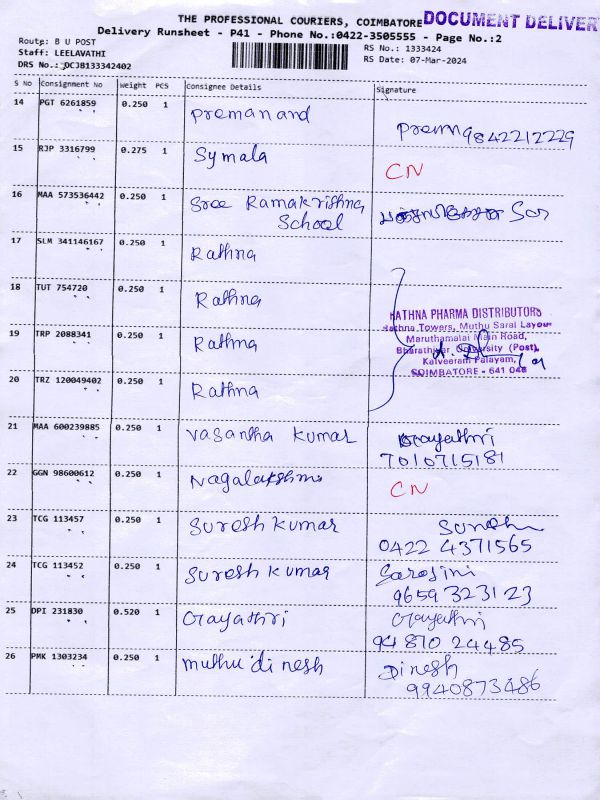 THE PROFESSIONAL COURIERS, COIMBATORE DOCUMENT DELIVER
Delivery Runsheet - P41 - Phone No.:0422-3505555 - Page No.:2
Route: B U POST
Staff: LEELAVATHI
DRS No.: DCJB133342402
RS No.: 1333424
RS Date: 07-Mar-2024
S No Consignment No Weight PCS Consignee Details Signature
14 PGT 6261859 0.250 1 Premanand Prem 9842212229
15 RJP 3316799 0.275 1 Symala CN
16 MAA 573536442 0.250 1 Sree Ramakrishna
School
17 SLM 341146167 0.250 1 Rathna
18 TUT 754720 0.250 1 Rathna
19 TRP 2088341 0.250 1 Rathna
20 TRZ 120049402 0.250 1 Rathna
RATHNA PHARMA DISTRIBUTORS
Rathna Towers, Muthu Saral Layout
Maruthamalai Main Road,
Bharathiyar University (Post),
Kalveeram Palayam,
COIMBATORE - 641 046
21 MAA 600239885 0.250 1 Vasantha Kumar Gayathri
7010715181
22 GGN 98600612 0.250 1 Nagalakshmi CN
23 TCG 113457 0.250 1 Suresh Kumar Suresh
0422 4371565
24 TCG 113452 0.250 1 Suresh Kumar Sarojini
9659323123
25 DPI 231830 0.520 1 Gayathri Gayathri
94870 24485
26 PMK 1303234 0.250 1 muthu dinesh Dinesh
9940873486